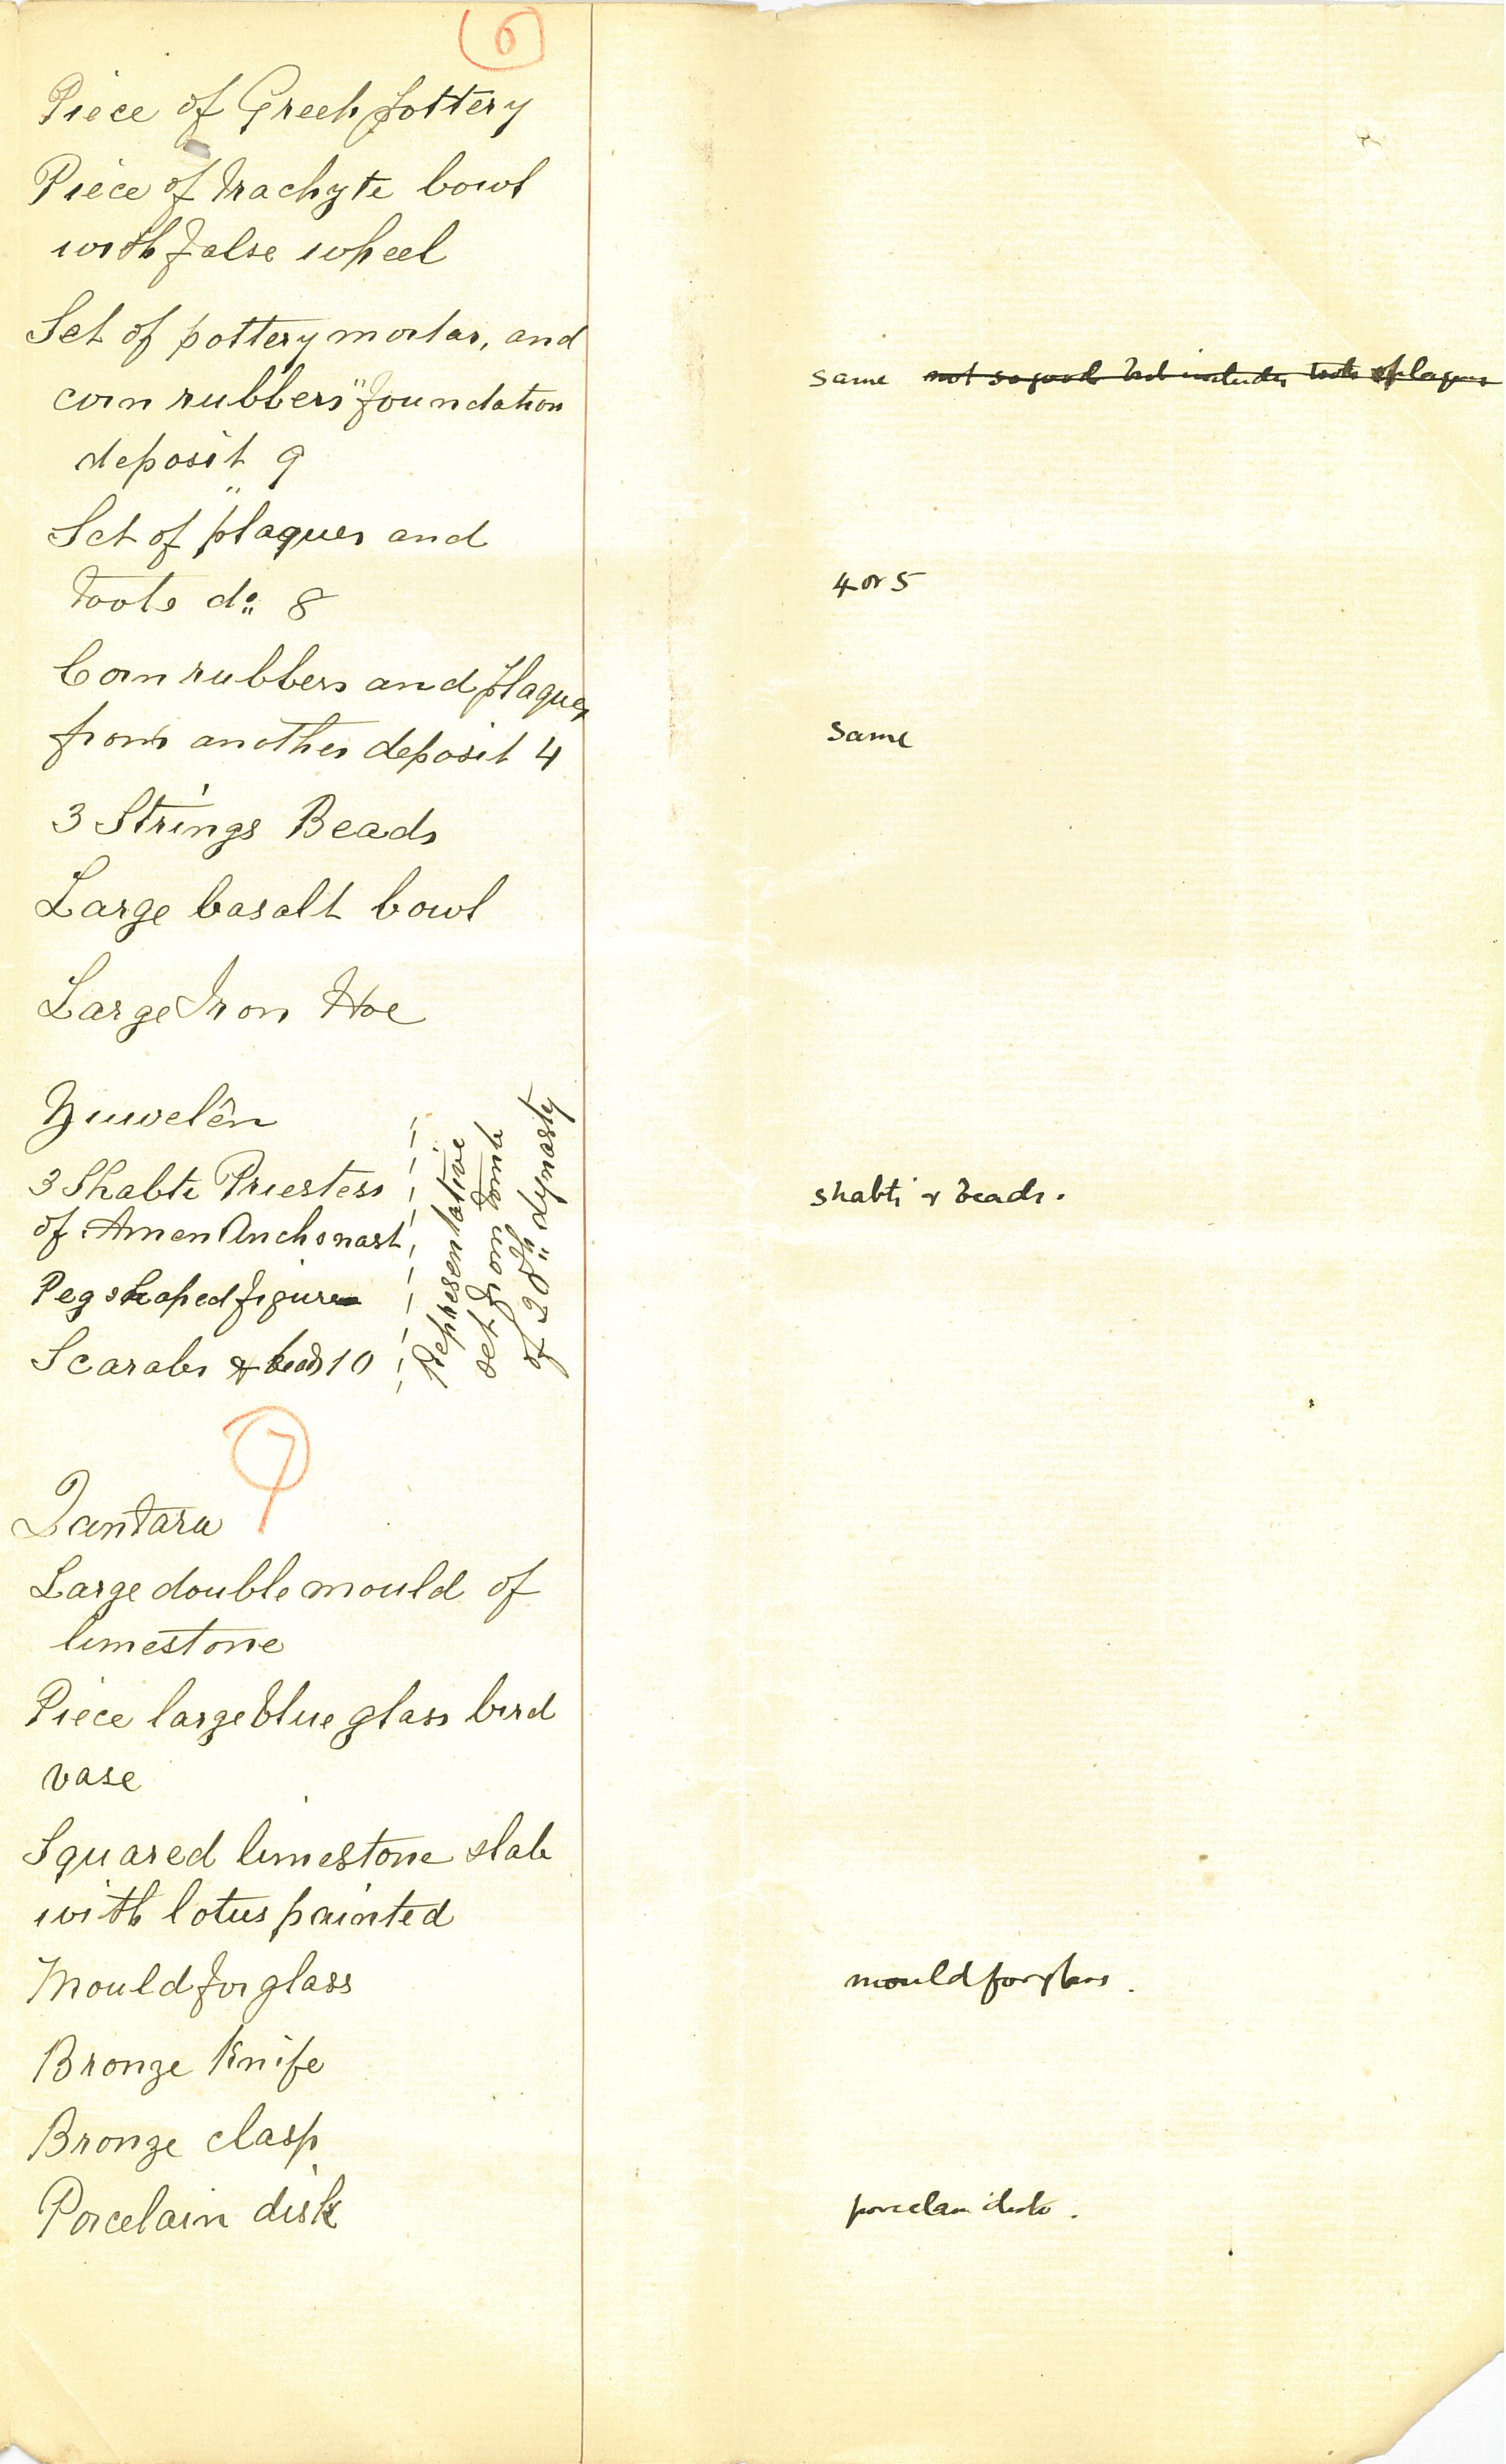 6
Piece of Greek pottery
Piece of trachyte bowl
with false wheel
Set of pottery mortar, and
corn rubbers "foundation
deposit 9
same not so good but includes tools & plaques
Set of plaques and
tools do 8
4 or 5
Corn rubbers and plaques
from another deposit 4
same
3 Strings Beads
Large basalt bowl
Large Iron Hoe
Zuwelên
3 Shabti Priestess
of Amen Anchsnast
Peg shaped figure
Scarabs & beads 10
Representative
set from tomb
of 20" dynasty
shabti & beads.
7
Qantara
Large double mould of
limestone
Piece large blue glass bird
vase
Squared limestone slab
with lotus painted
Mould for glass
mould for glass.
Bronze Knife
Bronze clasp
Porcelain disk
porcelain disk.